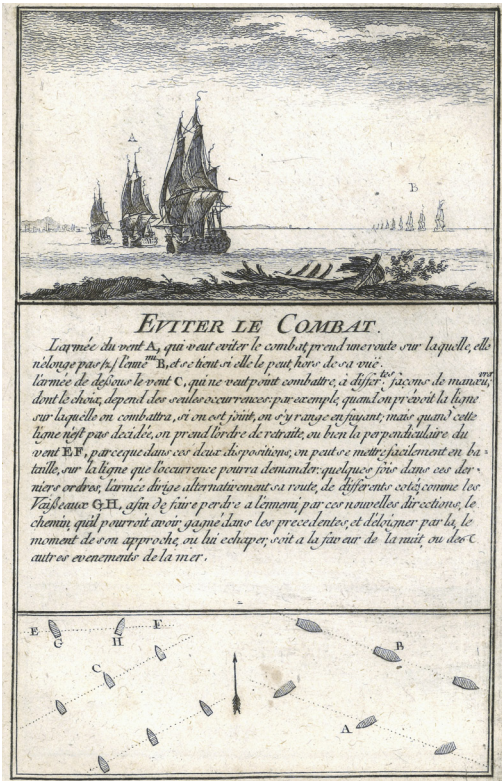 A
B
EVITER LE COMBAT.
L'armée du vent A, qui veut eviter le combat, prend une route sur laquelle, elle
n'élonge pas l'enne.mi B, et se tient si elle le peut, hors de sa vuë.
l'armée de dessous le vent C, qui ne veut point combattre, à differ.tes façons de manœu.vres
dont le choix, depend des seules occurrences: par exemple, quand on prevoit la ligne
sur laquelle on combattra, si on est joint, on s'y range en fuyant; mais quand cette
ligne n'est pas decidée, on prend l'ordre de retraite, ou bien la perpendiculaire du
vent EF, parceque dans ces deux dispositions, on peut se mettre facilement en ba-
taille, sur la ligne que l'occurrence pourra demander: quelques fois dans ces der-
niers ordres, l'armée dirige alternativement sa route, de differents cotés, comme les
Vaisseaux G,H, afin de faire perdre a l'ennemi par ces nouvelles directions, le
chemin, qu'il pourroit avoir gagné dans les precedentes, et d'éloigner par la, le
moment de son approche, ou lui echaper, soit a la faveur de la nuit, ou des
autres evenements de la mer.
E G H F
C
B
A